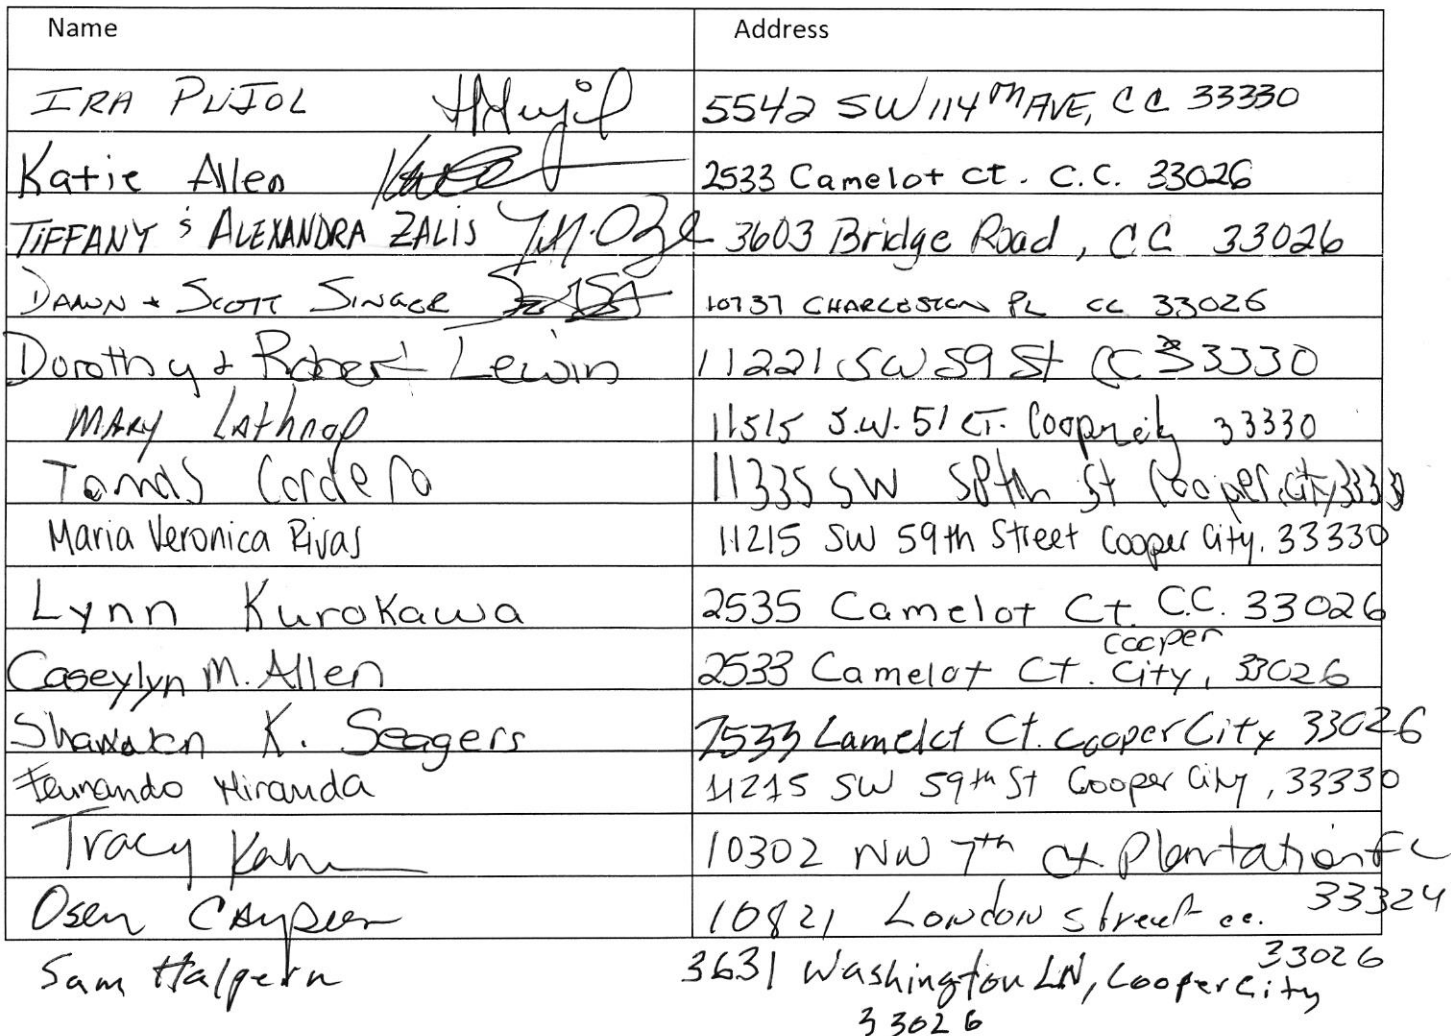 Name Address
IRA PUJOL 5542 SW 114th AVE, CC 33330
Katie Allen 2533 Camelot Ct. C.C. 33026
TIFFANY & ALEXANDRA ZALIS 3603 Bridge Road, CC 33026
DAWN + SCOTT SINGER 10737 CHARLESTON PL CC 33026
Dorothy + Robert Lewin 11221 SW 59 St CC 33330
MARY Lathrop 11515 S.W. 51 CT. Cooper city 33330
Tomas Cordero 11335 SW 58th St Cooper city 33330
Maria Veronica Rivas 11215 SW 59th Street Cooper City, 33330
Lynn Kurokawa 2535 Camelot Ct. C.C. 33026
Caseylyn M. Allen 2533 Camelot Ct. Cooper City, 33026
K. Seagers 2533 Camelot Ct. Cooper City 33026
Fernando Miranda 11215 SW 59th St Cooper City, 33330
Tracy Kahn 10302 NW 7th Ct. Plantation FL 33324
10821 London street cc. 33026
Sam Halpern 3631 Washington LN, Cooper City
33026